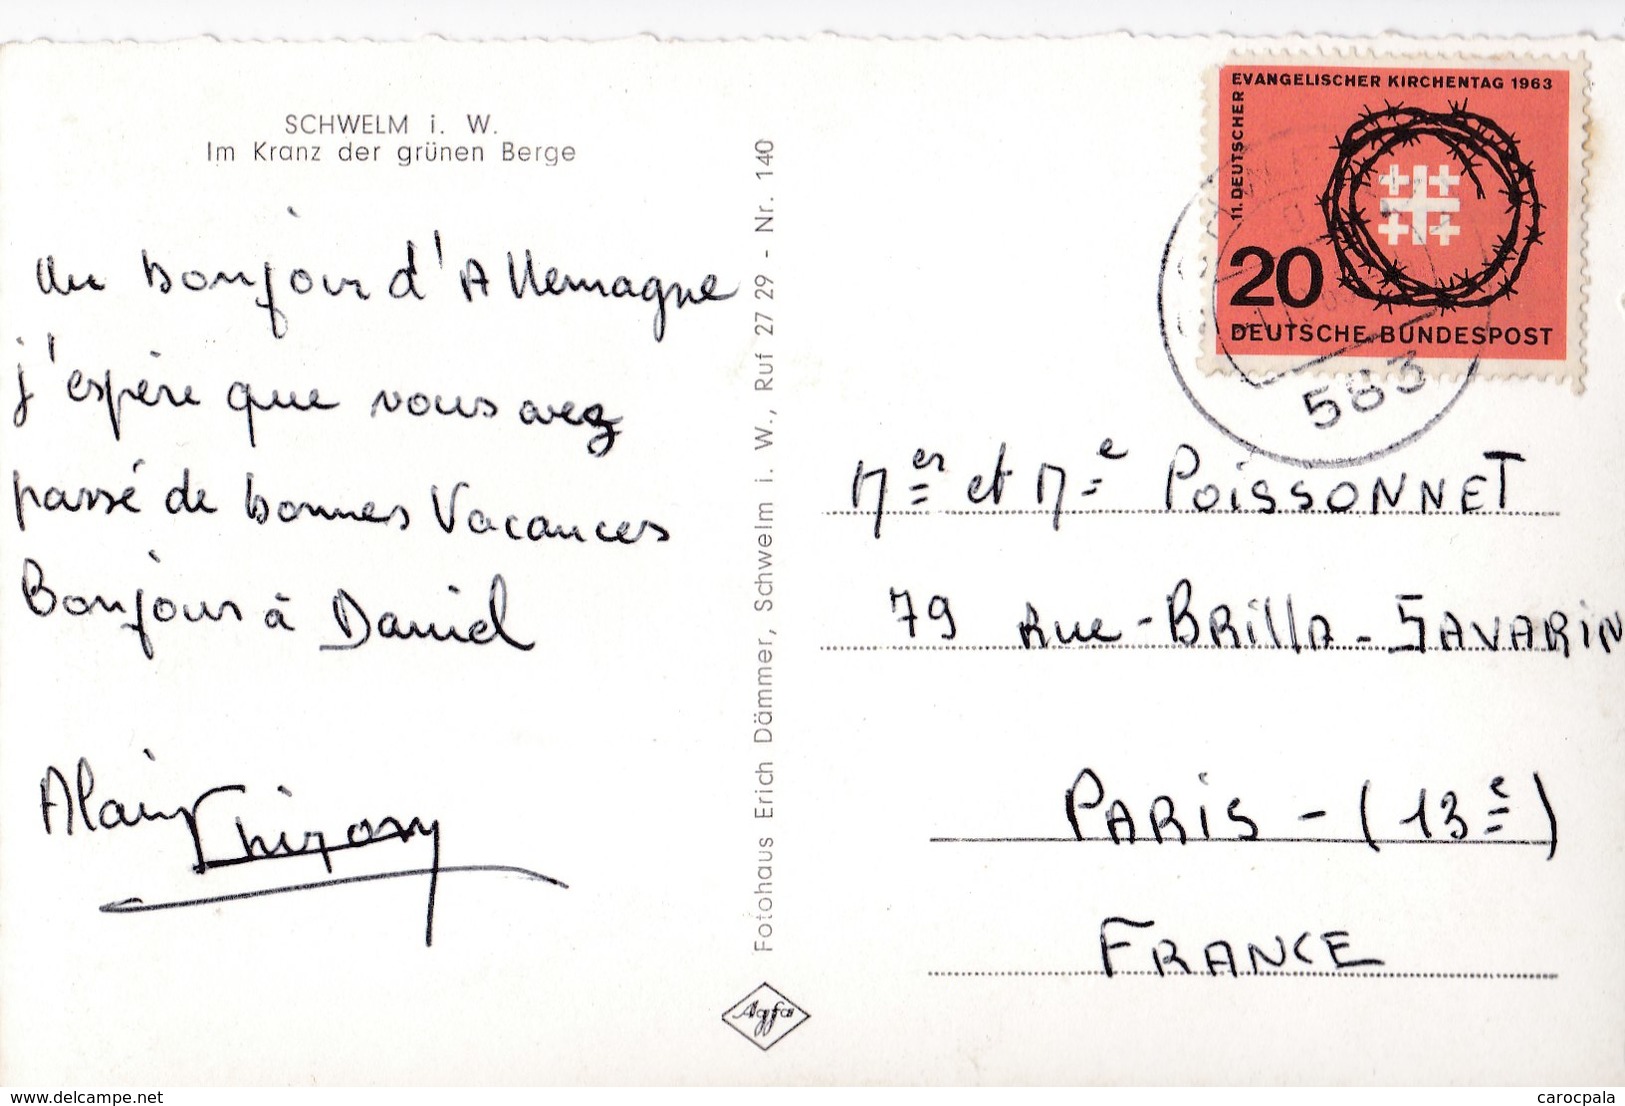 SCHWELM i. W.
Im Kranz der grünen Berge
un bonjour d'Allemagne
j'espère que vous avez
passé de bonnes Vacances
Bonjour à Daniel
Alain
Fotohaus Erich Dämmer, Schwelm i. W., Ruf 27 29 - Nr. 140
Agfa
11. DEUTSCHER
EVANGELISCHER KIRCHENTAG 1963
20
DEUTSCHE BUNDESPOST
583
Mer et Me POISSONNET
79 Rue - BRILLA - SAVARIN
PARIS - (13e)
FRANCE
delcampe.net
carocpala